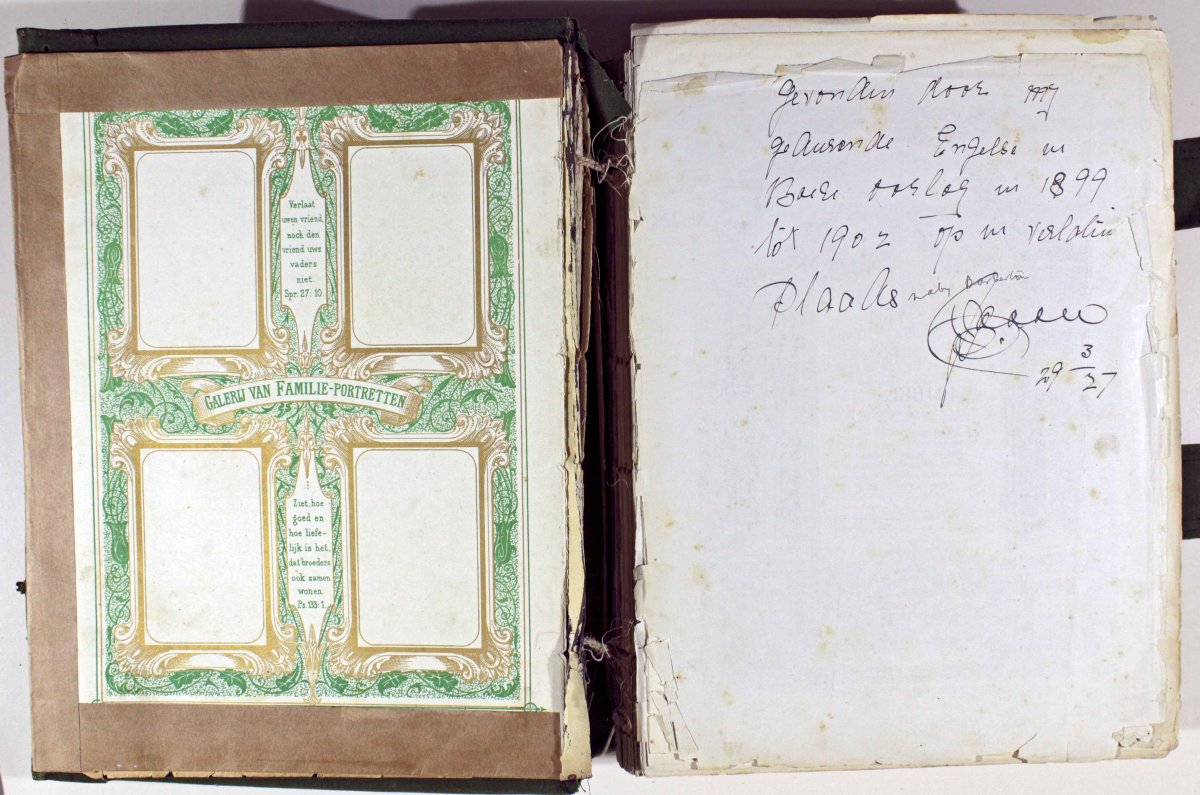 Verlaat
uwen vriend,
noch den
vriend uws
vaders
niet.
Spr. 27: 10.
GALERIJ VAN FAMILIE-PORTRETTEN
Ziet, hoe
goed en
hoe liefe-
lijk is het,
dat broeders
ook samen
wonen.
Ps. 133: 1.
gevonden door my
gedurende Engelse en
Boere oorlog in 1899
tot 1902 op in verlatin
Plaats naby
29 3/27